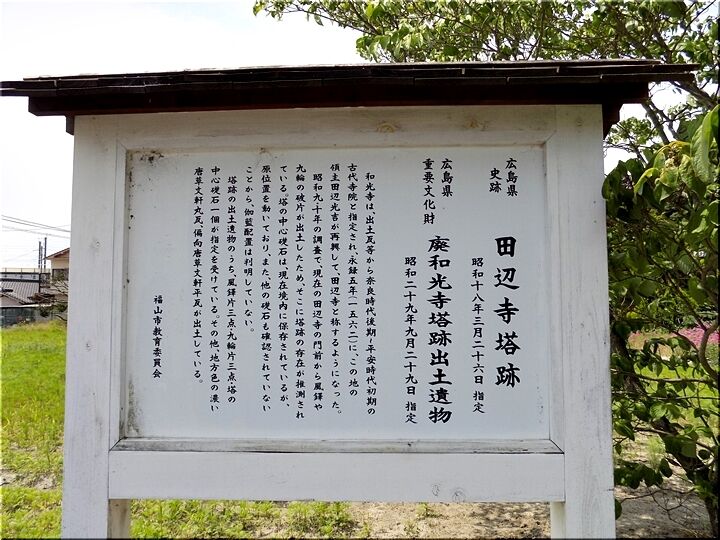 広島県
史跡
田辺寺塔跡
昭和十八年三月二十六日 指定
広島県
重要文化財
廃和光寺塔跡出土遺物
昭和二十九年九月二十九日 指定
和光寺は、出土瓦等から奈良時代後期~平安時代初期の
古代寺院と指定され、永録五年(一五六二)に、この地の
領主田辺光吉が再興して、田辺寺と称するようになった。
昭和九・十年の調査で、現在の田辺寺の門前から風鐸や
九輪の破片が出土したため、そこに塔跡の存在が推測され
ている。塔の中心礎石は、現在境内に保存されているが、
原位置を動いており、また、他の礎石も確認されていない
ことから、伽藍配置は判明していない。
塔跡の出土遺物のうち、風鐸片三点、九輪片三点、塔の
中心礎石一個が指定を受けている。その他、地方色の濃い
唐草文軒丸瓦、偏向唐草文軒平瓦が出土している。
福山市教育委員会